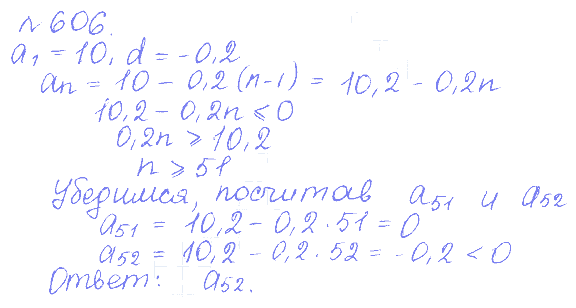 № 606.
a₁ = 10, d = -0,2
aₙ = 10 - 0,2 (n-1) = 10,2 - 0,2n
10,2 - 0,2n ⩽ 0
0,2n ⩾ 10,2
n ⩾ 51
Убедимся, посчитав a₅₁ и a₅₂
a₅₁ = 10,2 - 0,2 · 51 = 0
a₅₂ = 10,2 - 0,2 · 52 = -0,2 < 0
Ответ: a₅₂.